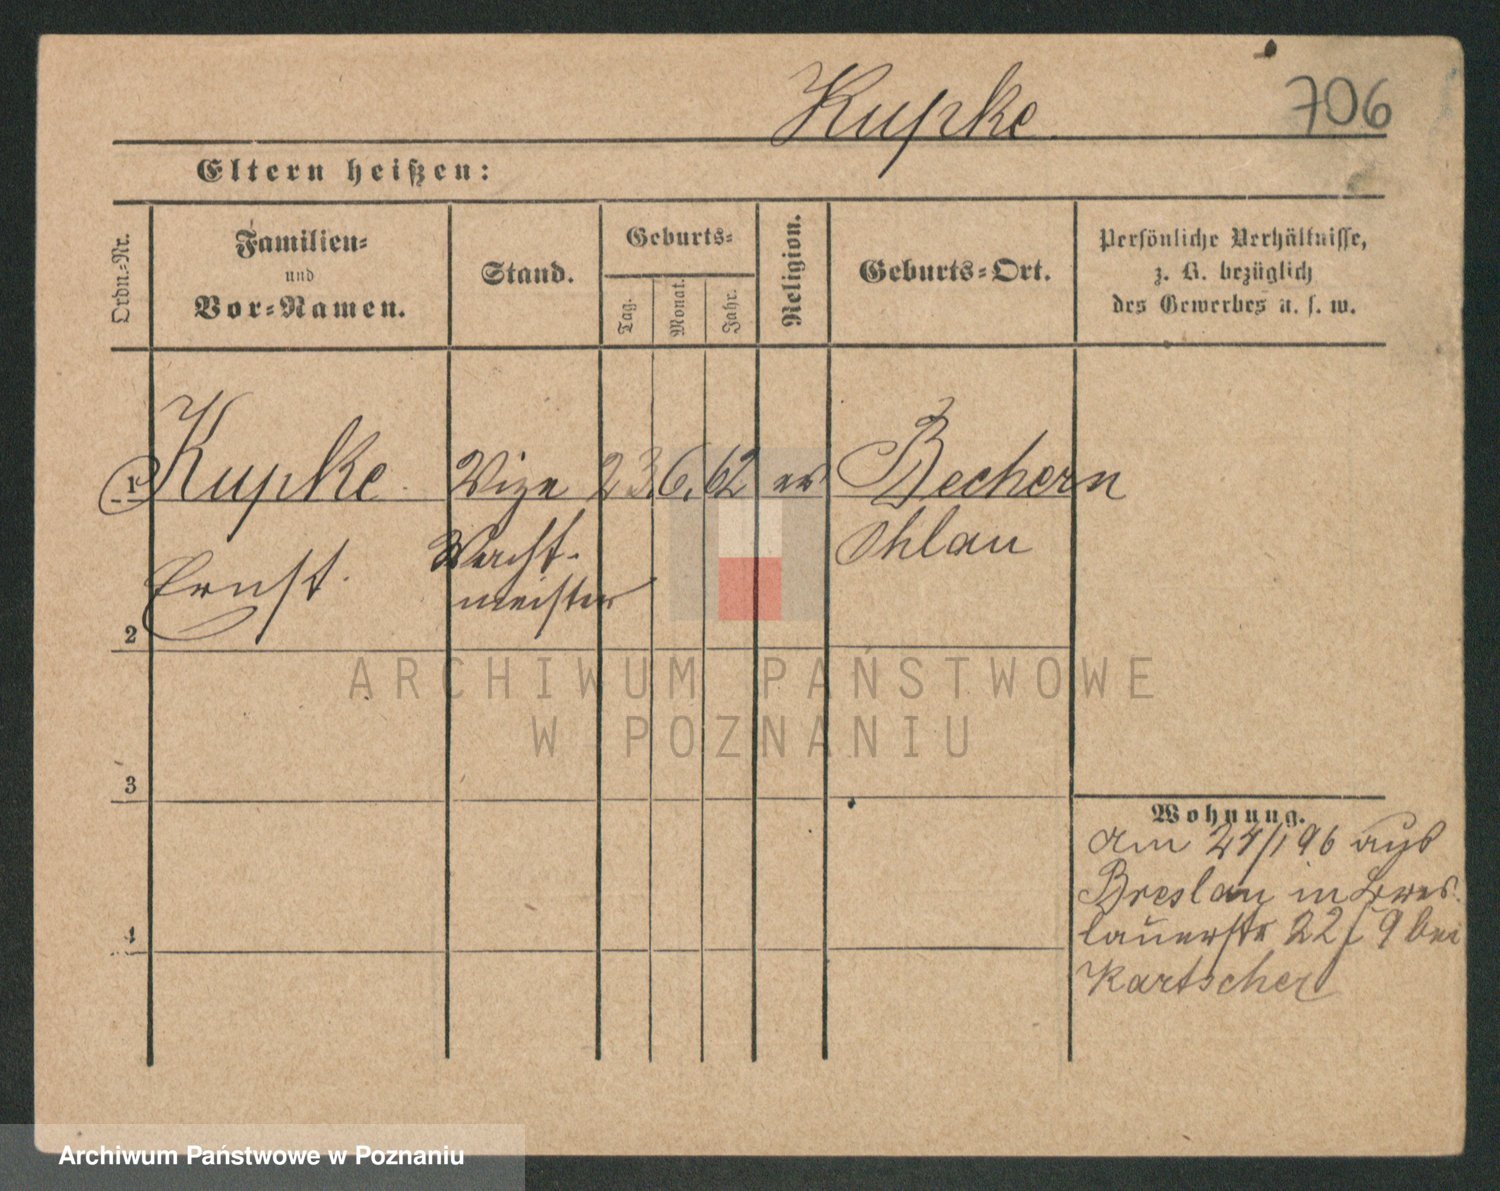 Kupke
706
Eltern heißen:
Ordn.-Nr.
Familien-
und
Vor-Namen.
Stand.
Geburts-
Tag.
Monat.
Jahr.
Religion.
Geburts-Ort.
Persönliche Verhältnisse,
z. B. bezüglich
des Gewerbes u. s. w.
1 Kupke Vize 23. 6. 62 ev Bechern
Ernst. Wacht- Ohlau
meister
2
3
4
Wohnung.
Am 24/1 96 aus
Breslau in
22 9 bei
Kartscher
ARCHIWUM PAŃSTWOWE
W POZNANIU
Archiwum Państwowe w Poznaniu